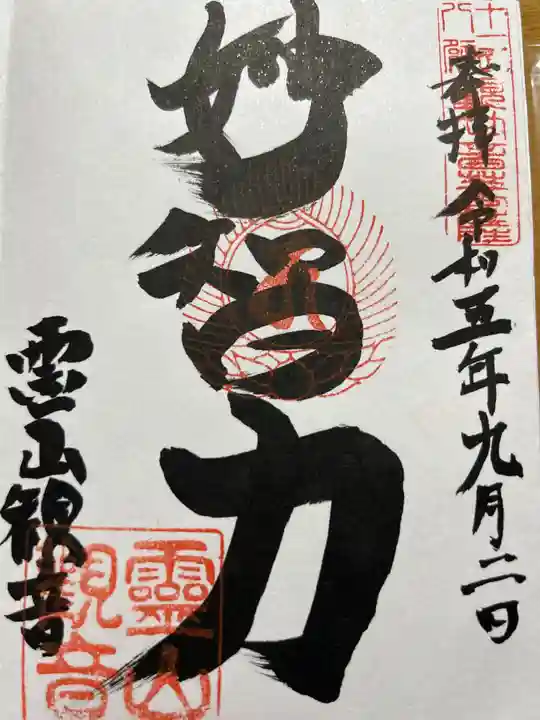 奉拝 令和五年九月二日
妙智力
霊山観音
靈山
觀音